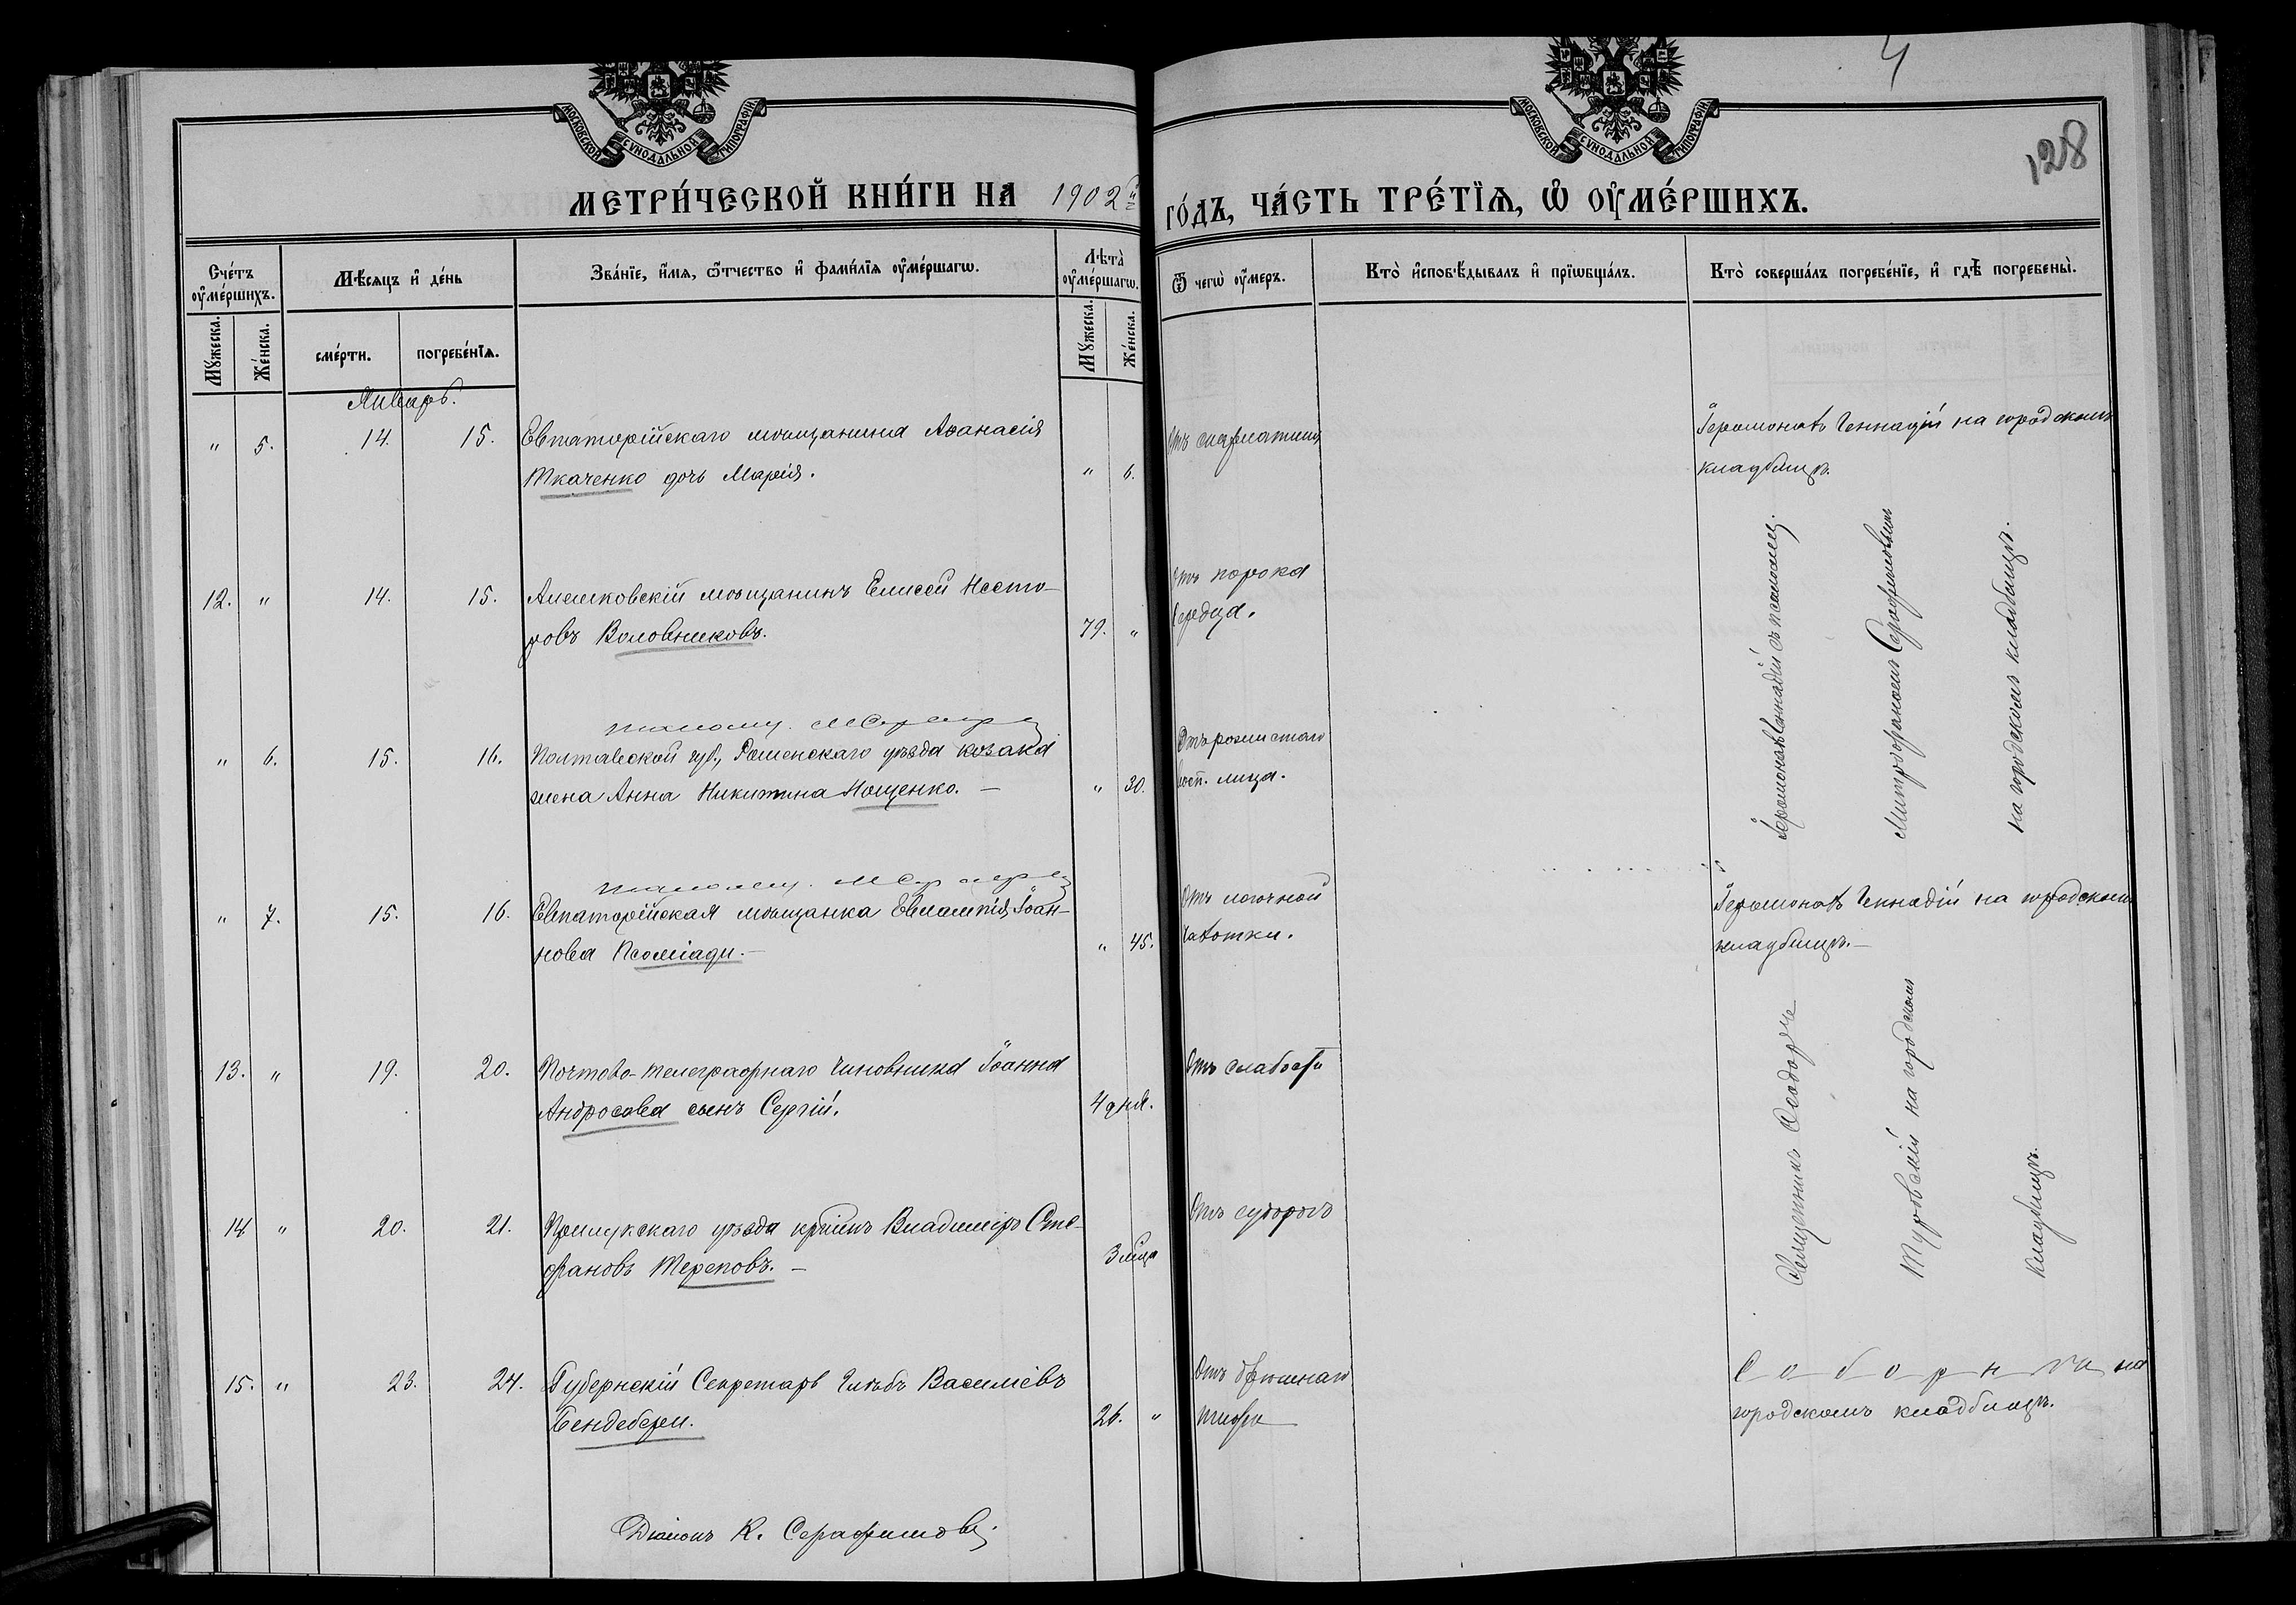 4
128
МОСКОВСКОЙ СУНОДАЛЬНОЙ ТИПОГРАФІИ
МОСКОВСКОЙ СУНОДАЛЬНОЙ ТИПОГРАФІИ
МЕТРИ́ЧЕСКОЙ КНИ́ГИ НА 1902й
ГО́ДЪ, ЧА́СТЬ ТРЕ́ТЇѦ, Ѡ ОУМЕ́РШИХЪ.
Сче́тъ оуме́ршихъ.
Мѣ́сяцъ и де́нь
Зва́нїе, и́мѧ, ѿтчество и фами́лїѧ оуме́ршагѡ.
Лѣта̀ оуме́ршагѡ.
Ѿ чегѡ̀ оу́меръ.
Кто̀ и́сповѣ́дывалъ и прїѡбща́лъ.
Кто̀ соверша́лъ погребе́нїе, и гдѣ̀ погребены̀.
Му́жеска.
Же́нска.
сме́рти.
погребе́нїѧ.
Му́жеска.
Же́нска.
Январь.
" 5. 14. 15. Евпаторійскаго мѣщанина Аѳанасія
Ткаченко дочь Марія. " 6.
Отъ скарлатины
Іеромонахъ Геннадій на городскомъ
кладбищѣ.
12. " 14. 15. Алешковскій мѣщанинъ Елисей Несто-
ровъ Воловниковъ. 79. "
Отъ порока
сердца.
Іеромонахъ Геннадій съ псаломщ.
Митрофаномъ Серафимовымъ
на городскомъ кладбищѣ.
" 6. 15. 16. Полтавской губ., Роменскаго уѣзда козака
жена Анна Никитина Нощенко. — " 30.
Отъ рожистаго
восп. лица.
" 7. 15. 16. Евпаторійская мѣщанка Евлампія Іоан-
нова Псоміади. — " 45.
Отъ легочной
чахотки.
Іеромонахъ Геннадій на городскомъ
кладбищѣ. —
13. " 19. 20. Почтово-телеграфнаго чиновника Іоанна
Андросова сынъ Сергій. 4 дня.
Отъ слабости
Священникъ Ѳеодоръ
Туровскій на городскомъ
кладбищѣ.
14 " 20. 21. Прилукскаго уѣзда кр-нинъ Владиміръ Сте-
фановъ Тереповъ. — 3 мѣца
Отъ судорогъ
15. " 23. 24. Губернскій Секретарь Глѣбъ Василіевъ
Бендебери. 26. "
Отъ брюшнаго
тифа
Соборнѣ на
городскомъ кладбищѣ.
Діаконъ К. Серафимовъ.